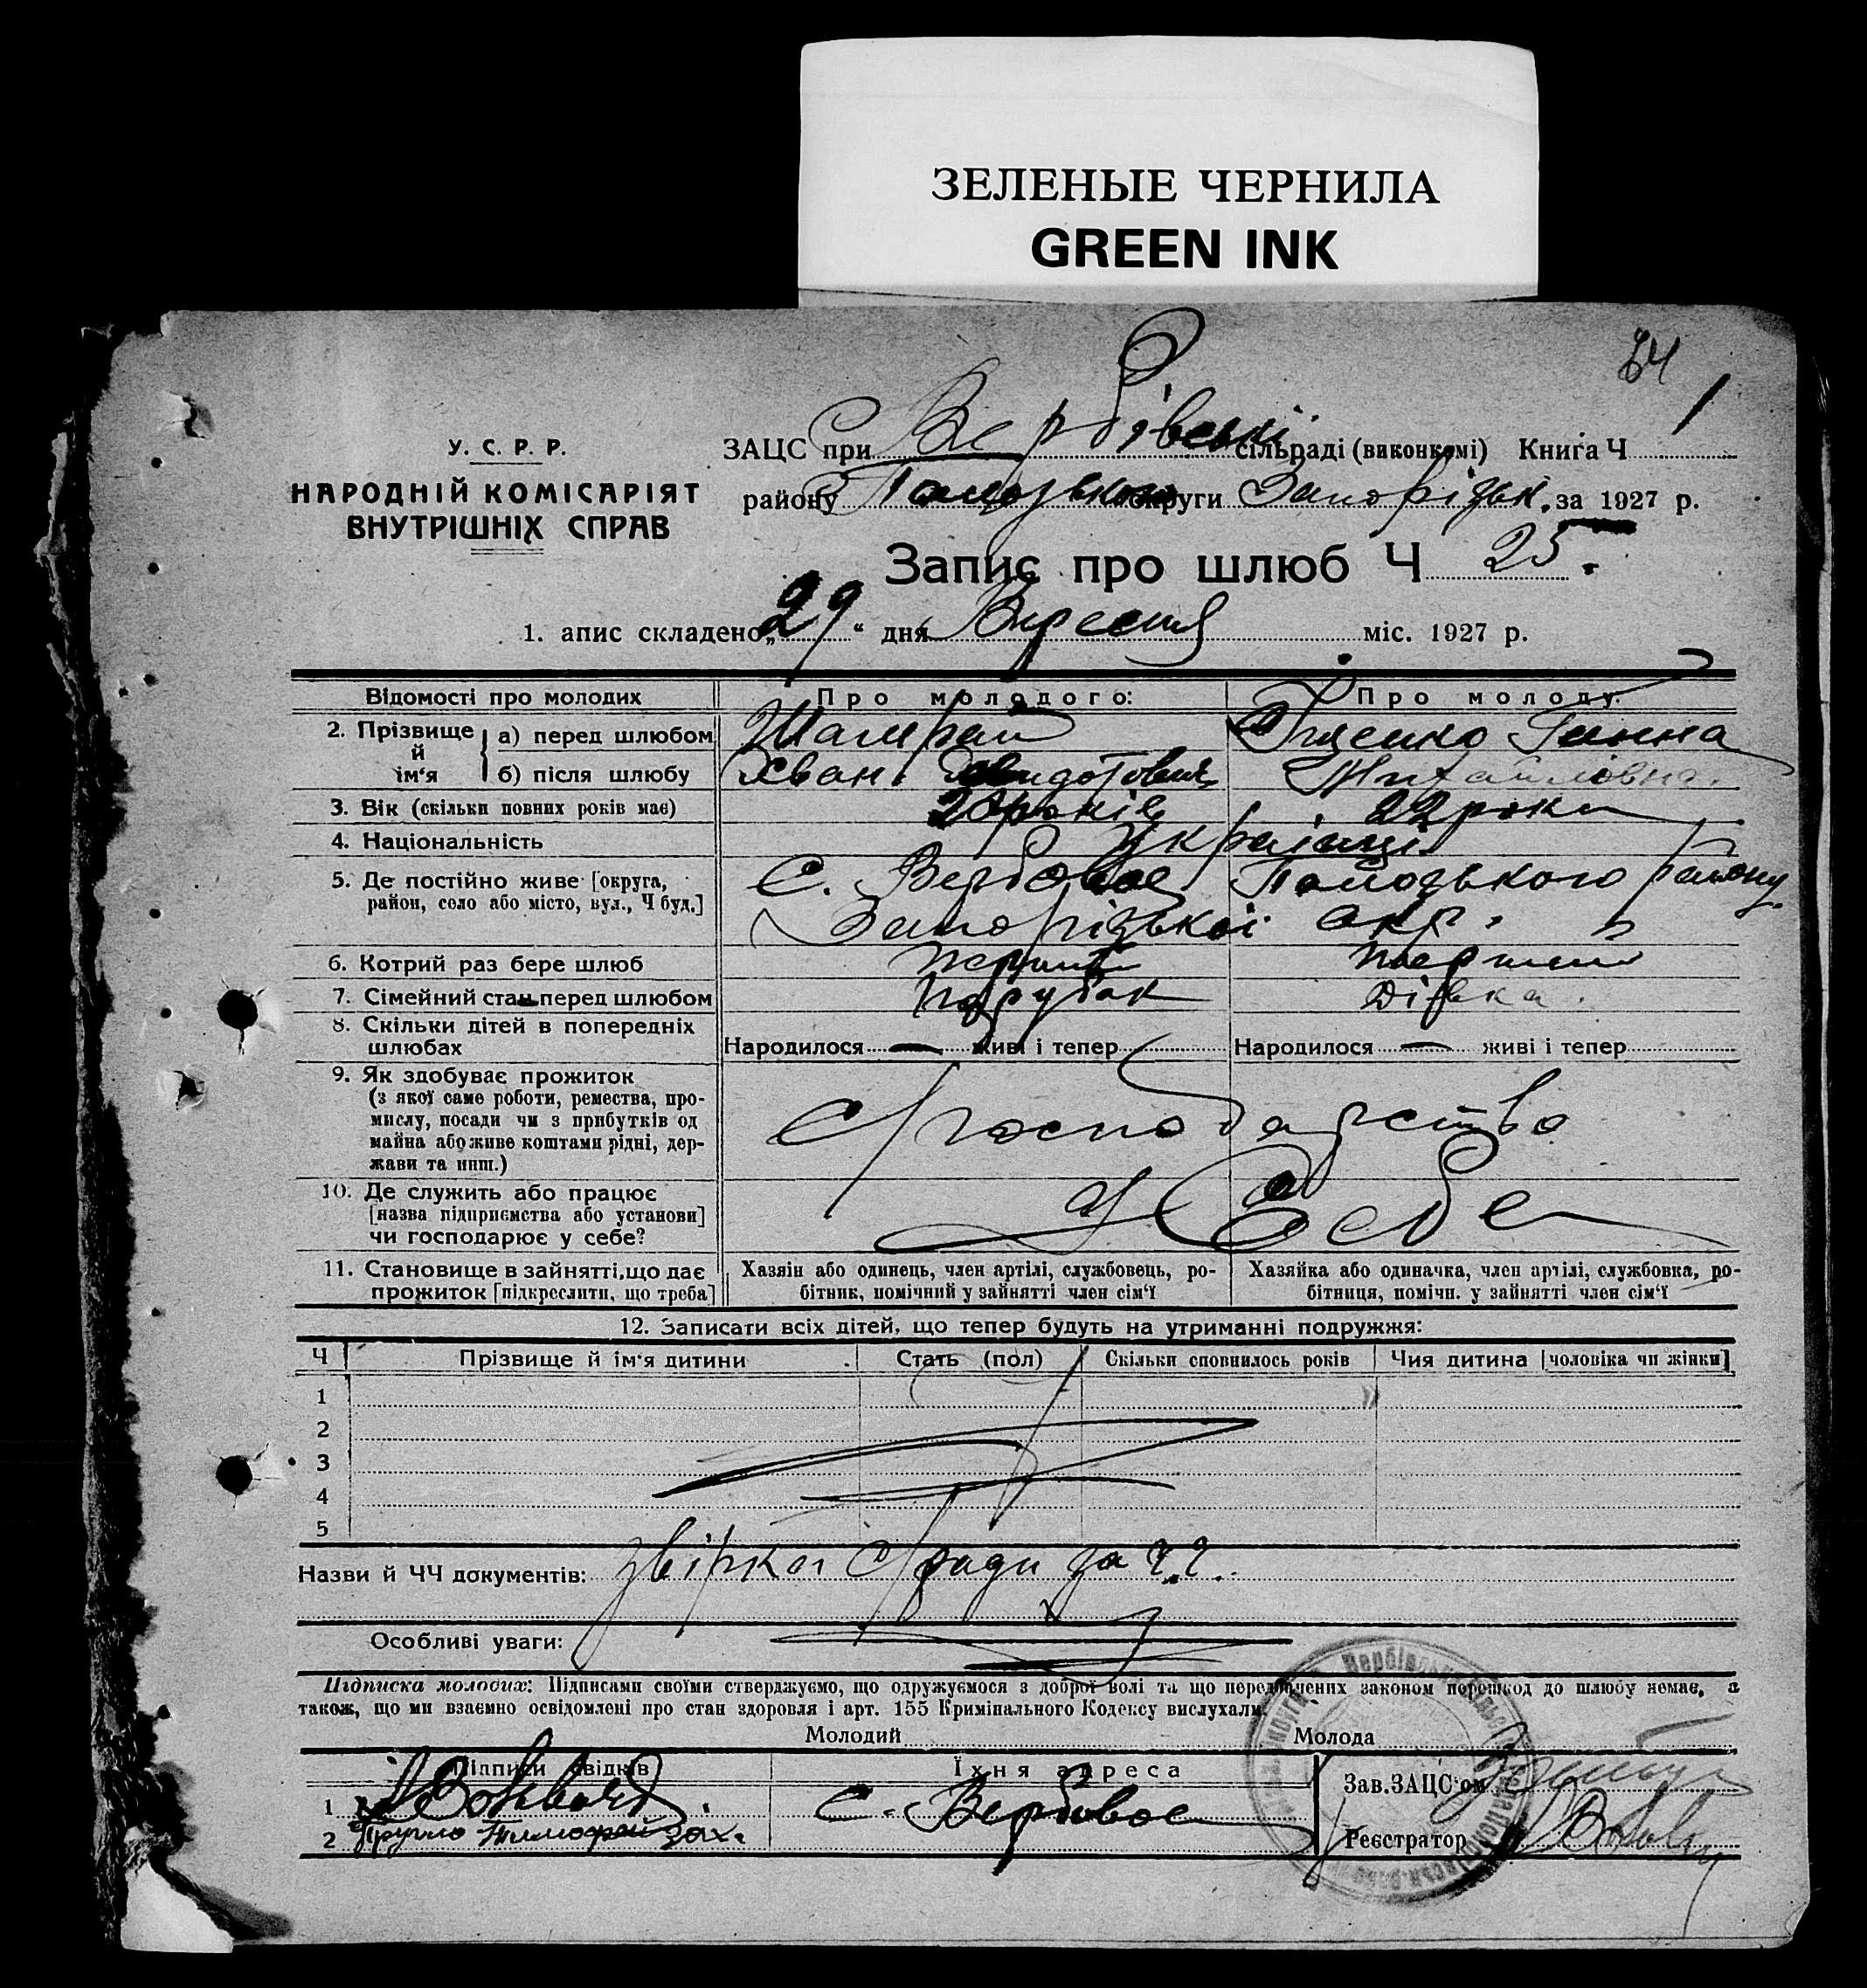 ЗЕЛЕНЫЕ ЧЕРНИЛА
GREEN INK
У. С. Р. Р.
НАРОДНІЙ КОМІСАРІЯТ
ВНУТРІШНІХ СПРАВ
ЗАЦС при Вербівській сільраді (виконкомі) Книга Ч
району округи Запорізьк. за 1927 р.
Запис про шлюб Ч 25.
1. апис складено „29“ дня Вересня міс. 1927 р.
Відомості про молодих Про молодого: Про молоду:
2. Прізвище й ім‘я
а) перед шлюбом Шамрай Гиценко Ганна
б) після шлюбу Іван Михайловна.
3. Вік (скільки повних років має) років 22 роки
4. Національність Українці
5. Де постійно живе [округа, район, село або місто, вул., Ч буд.] С. Вербове Пологського району
Запорізької окр.
6. Котрий раз бере шлюб перший перший
7. Сімейний стан перед шлюбом парубок дівка.
8. Скільки дітей в попередніх шлюбах Народилося — живі і тепер Народилося — живі і тепер
9. Як здобуває прожиток
(з якої саме роботи, ремества, про-
мислу, посади чи з прибутків од
майна або живе коштами рідні, дер-
жави та инш.)
С/господарство
10. Де служить або працює
[назва підприємства або установи]
чи господарює у себе?
У себе
11. Становище в зайнятті, що дає
прожиток [підкреслити, що треба]
Хазяїн або одинець, член артілі, службовець, ро-
бітник, помічний у зайнятті член сім‘ї
Хазяйка або одиначка, член артілі, службовка, ро-
бітниця, помічн. у зайнятті член сім‘ї
12. Записати всіх дітей, що тепер будуть на утриманні подружжя:
Ч Прізвище й ім‘я дитини Стать (пол) Скільки сповнилось років Чия дитина [чоловіка чи жінки]
1
2
3
4
5
Назви й ЧЧ документів: звірка С/ради за
Особливі уваги:
Підписка молодих: Підписами своїми стверджуємо, що одружуємося з доброї волі та що передбачених законом перешкод до шлюбу немає, а
також, що ми взаємно освідомлені про стан здоровля і арт. 155 Кримінального Кодексу вислухали.
Молодий Молода
Підписи свідків Їхня адреса Зав. ЗАЦС‘ом
1 С. Вербовое
2 Реєстратор